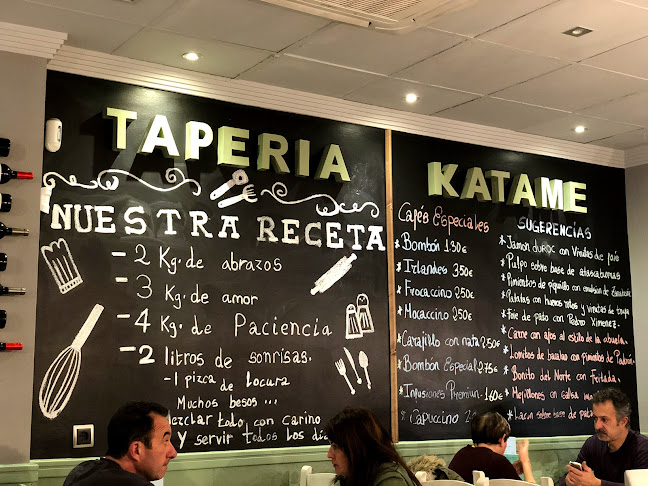 TAPERIA
NUESTRA RECETA
- 2 Kg. de abrazos
- 3 Kg. de amor
- 4 Kg. de Paciencia
- 2 litros de sonrisas.
- 1 pizca de locura
Muchos besos ...
todo con carino
Y servir todos los
KATAME
Cafés Especiales
* Bombón 1'30€
* Irlandes 3'50€
* Frocaccino 2'50€
* Mocaccino 2'50€
* Carajillo con nata 2'50€
* Bombón Especial 2'75€
* Infusiones Premium 1'60€
* Capuccino
SUGERENCIAS
* Jamon duroc con Virutas de
* Pulpo sobre base de
* Pimientos de piquillo con emulsion de
* Patatas con huevos rotos y virutas de
* Foie de pato con Pedro Ximenez.
* Carne con ajos al estilo de la abuela.
* Lomitos de bacalao con pimientos de Padron.
* Bonito del Norte con
* Mejillones en salsa
* Lacon sobre base de